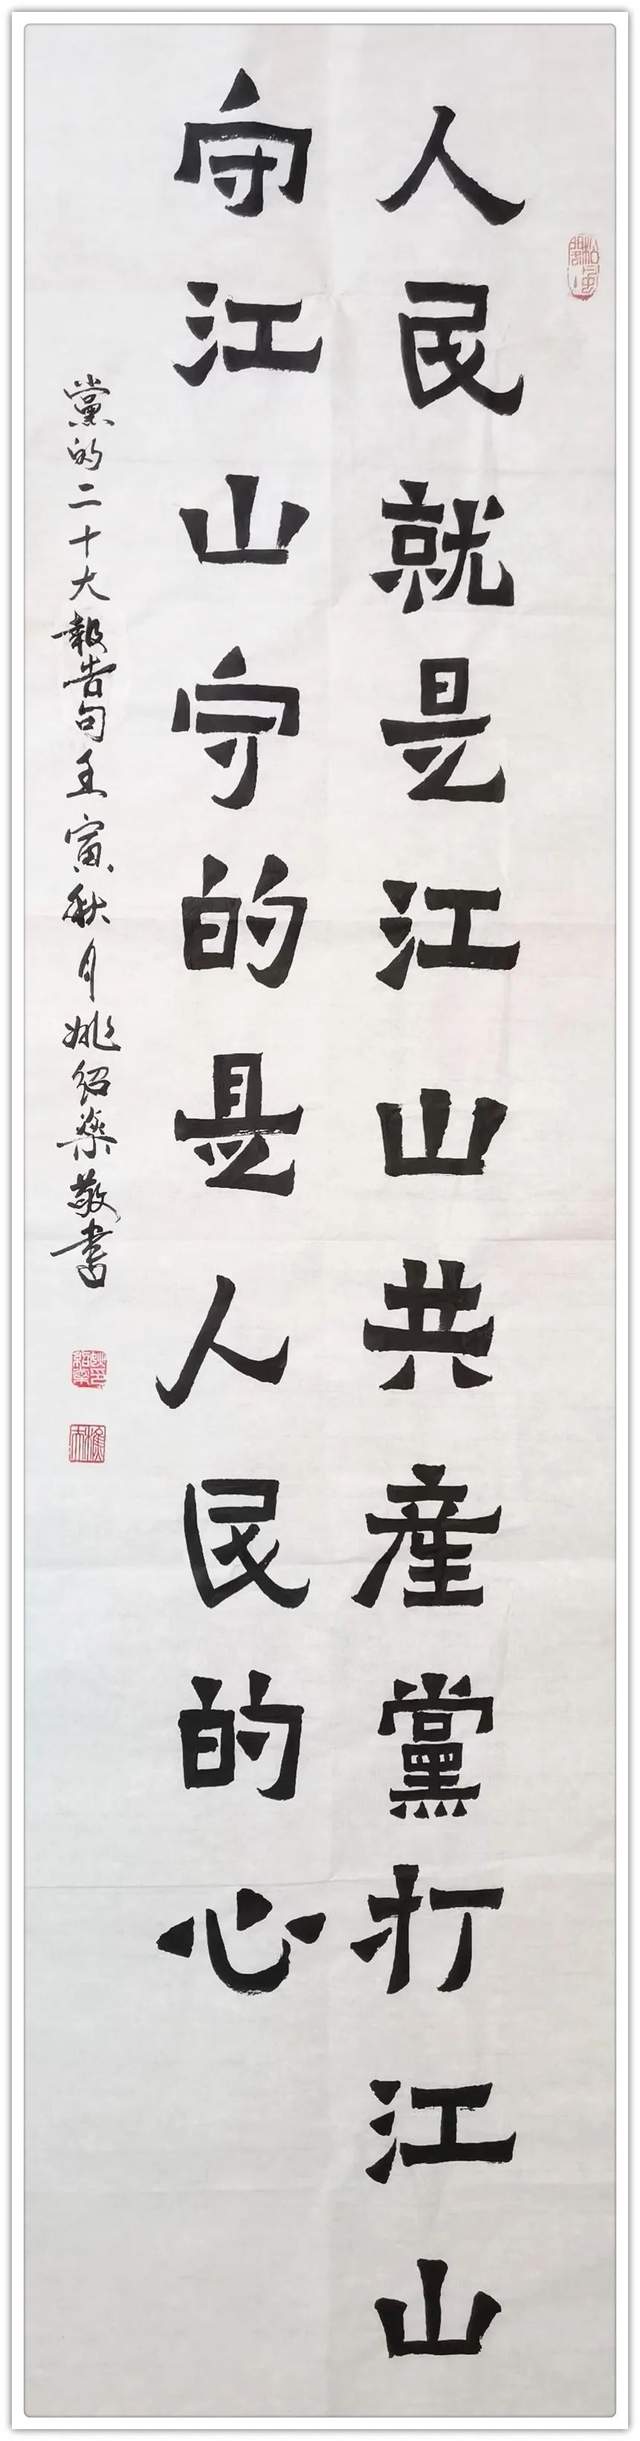 人民就是江山共產黨打江山
守江山守的是人民的心
黨的二十大報告句壬寅秋月姚紹燊敬書